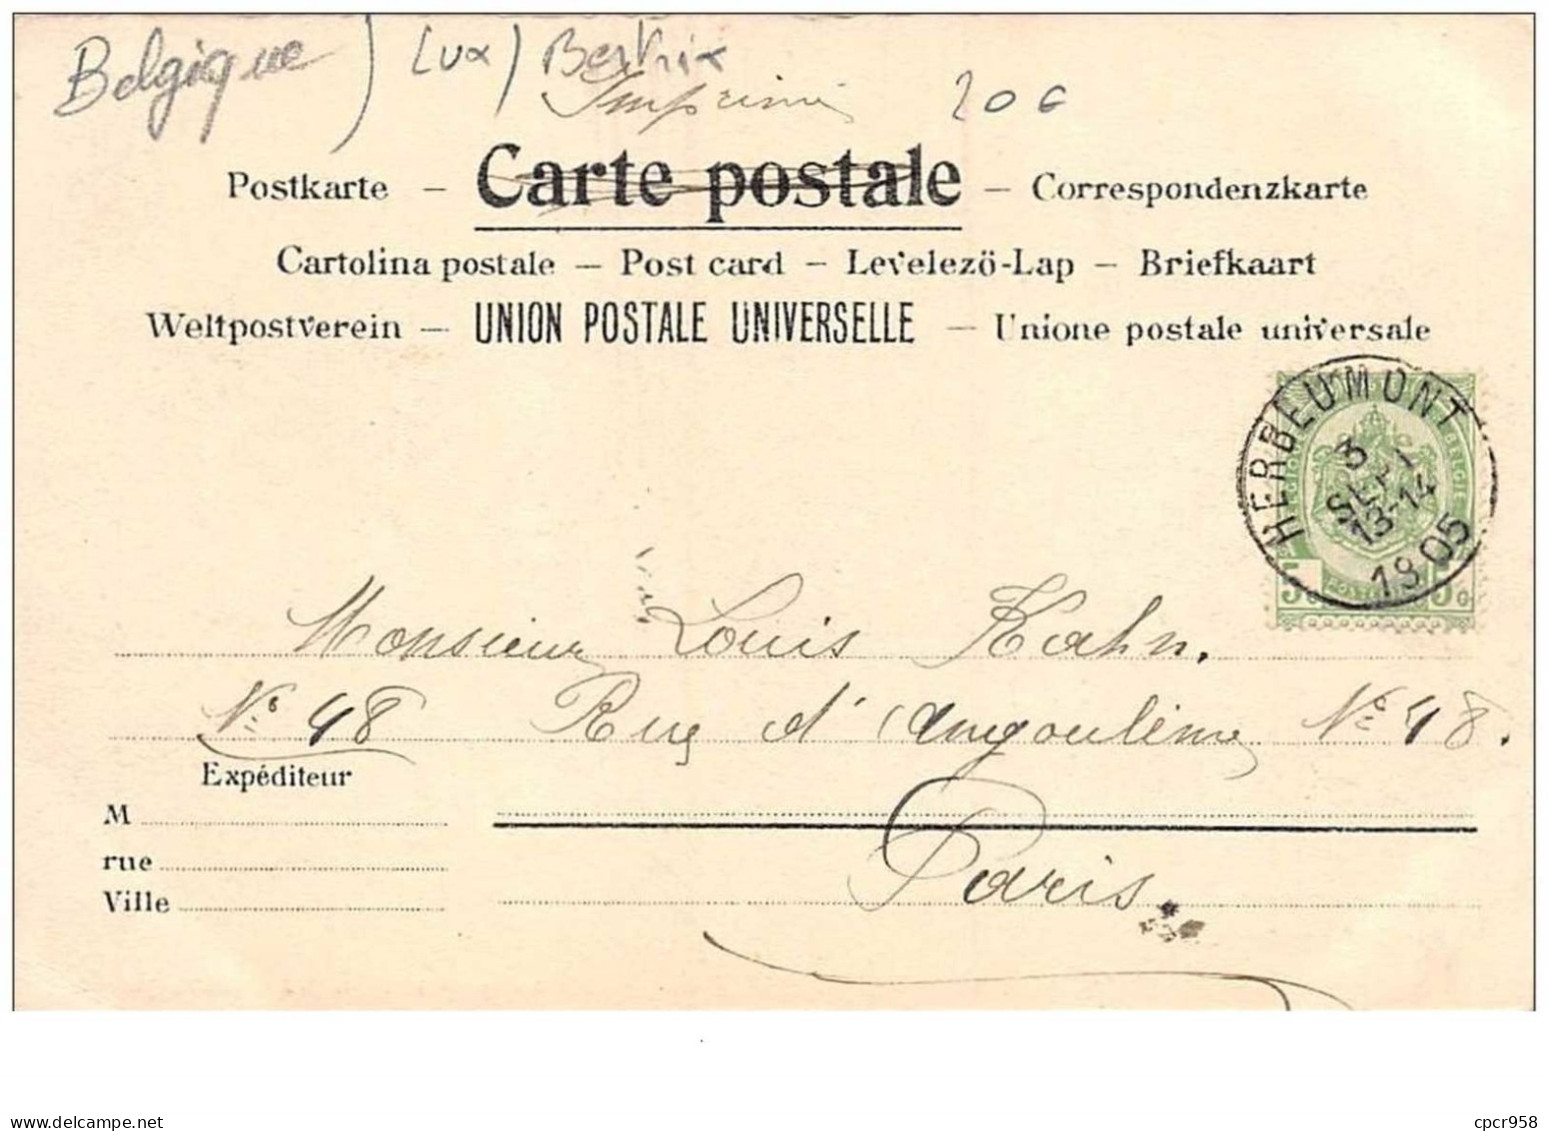 Belgique) (Lux) Bertrix
Imprimé 20 €
Postkarte – Carte postale – Correspondenzkarte
Cartolina postale – Post card – Levelezö-Lap – Briefkaart
Weltpostverein – UNION POSTALE UNIVERSELLE – Unione postale universale
HERBEUMONT
3
SEPT
13-14
1905
BELGIQUE BELGIE
5 C POSTE 5 C
Monsieur Louis Kahn.
N° 48 Rue d'Angoulème N° 48.
Expéditeur
M
rue
Ville
Paris.
cpcr958